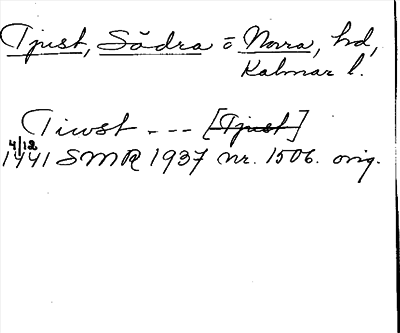 Tjust, Södra o Norra, hd,
Kalmar l.
Tiwst --- [Tjust]
4/12
1441 SMR 1937 nr. 1506. orig.